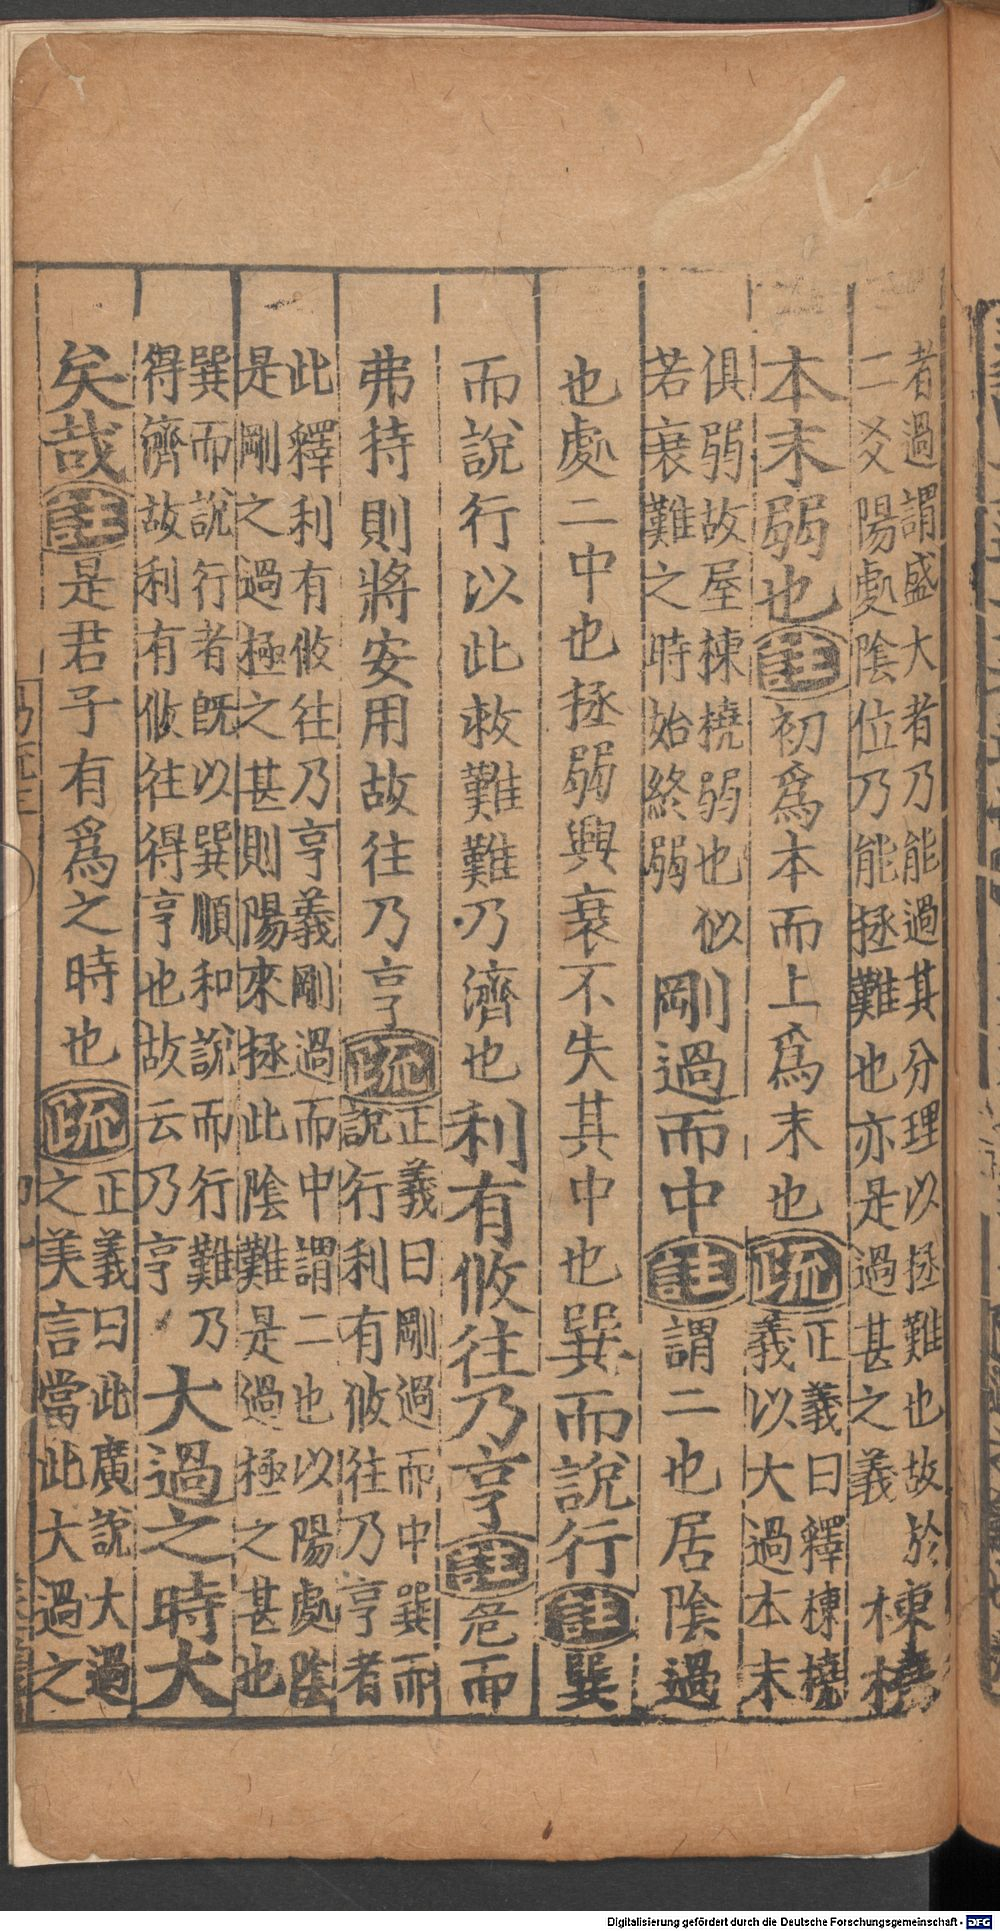 者過謂盛大者乃能過其分理以拯難也故於
二爻陽處隂位乃能拯難也亦是過甚之義
棟橈
本末弱也
註
初爲本而上爲末也
疏
正義曰釋棟橈
義以大過本末
俱弱故屋棟橈弱也似
若衰難之時始終弱
剛過而中
註
謂二也居隂過
也處二中也拯弱興衰不失其中也巽而說行
註
巽
而說行以此救難難乃濟也利有攸往乃亨
註
危而
弗持則將安用故往乃亨
疏
正義曰剛過而中巽而
說行利有攸往乃亨者
此釋利有攸往乃亨義剛過而中謂二也以陽處隂
是剛之過極之甚則陽來拯此隂難是過極之甚也
巽而說行者旣以巽順和說而行難乃
得濟故利有攸往得亨也故云乃亨
大過之時大
矣哉
註
是君子有爲之時也
疏
正義曰此廣說大過
之美言當此大過之
Digitalisierung gefördert durch die Deutsche Forschungsgemeinschaft - DFG